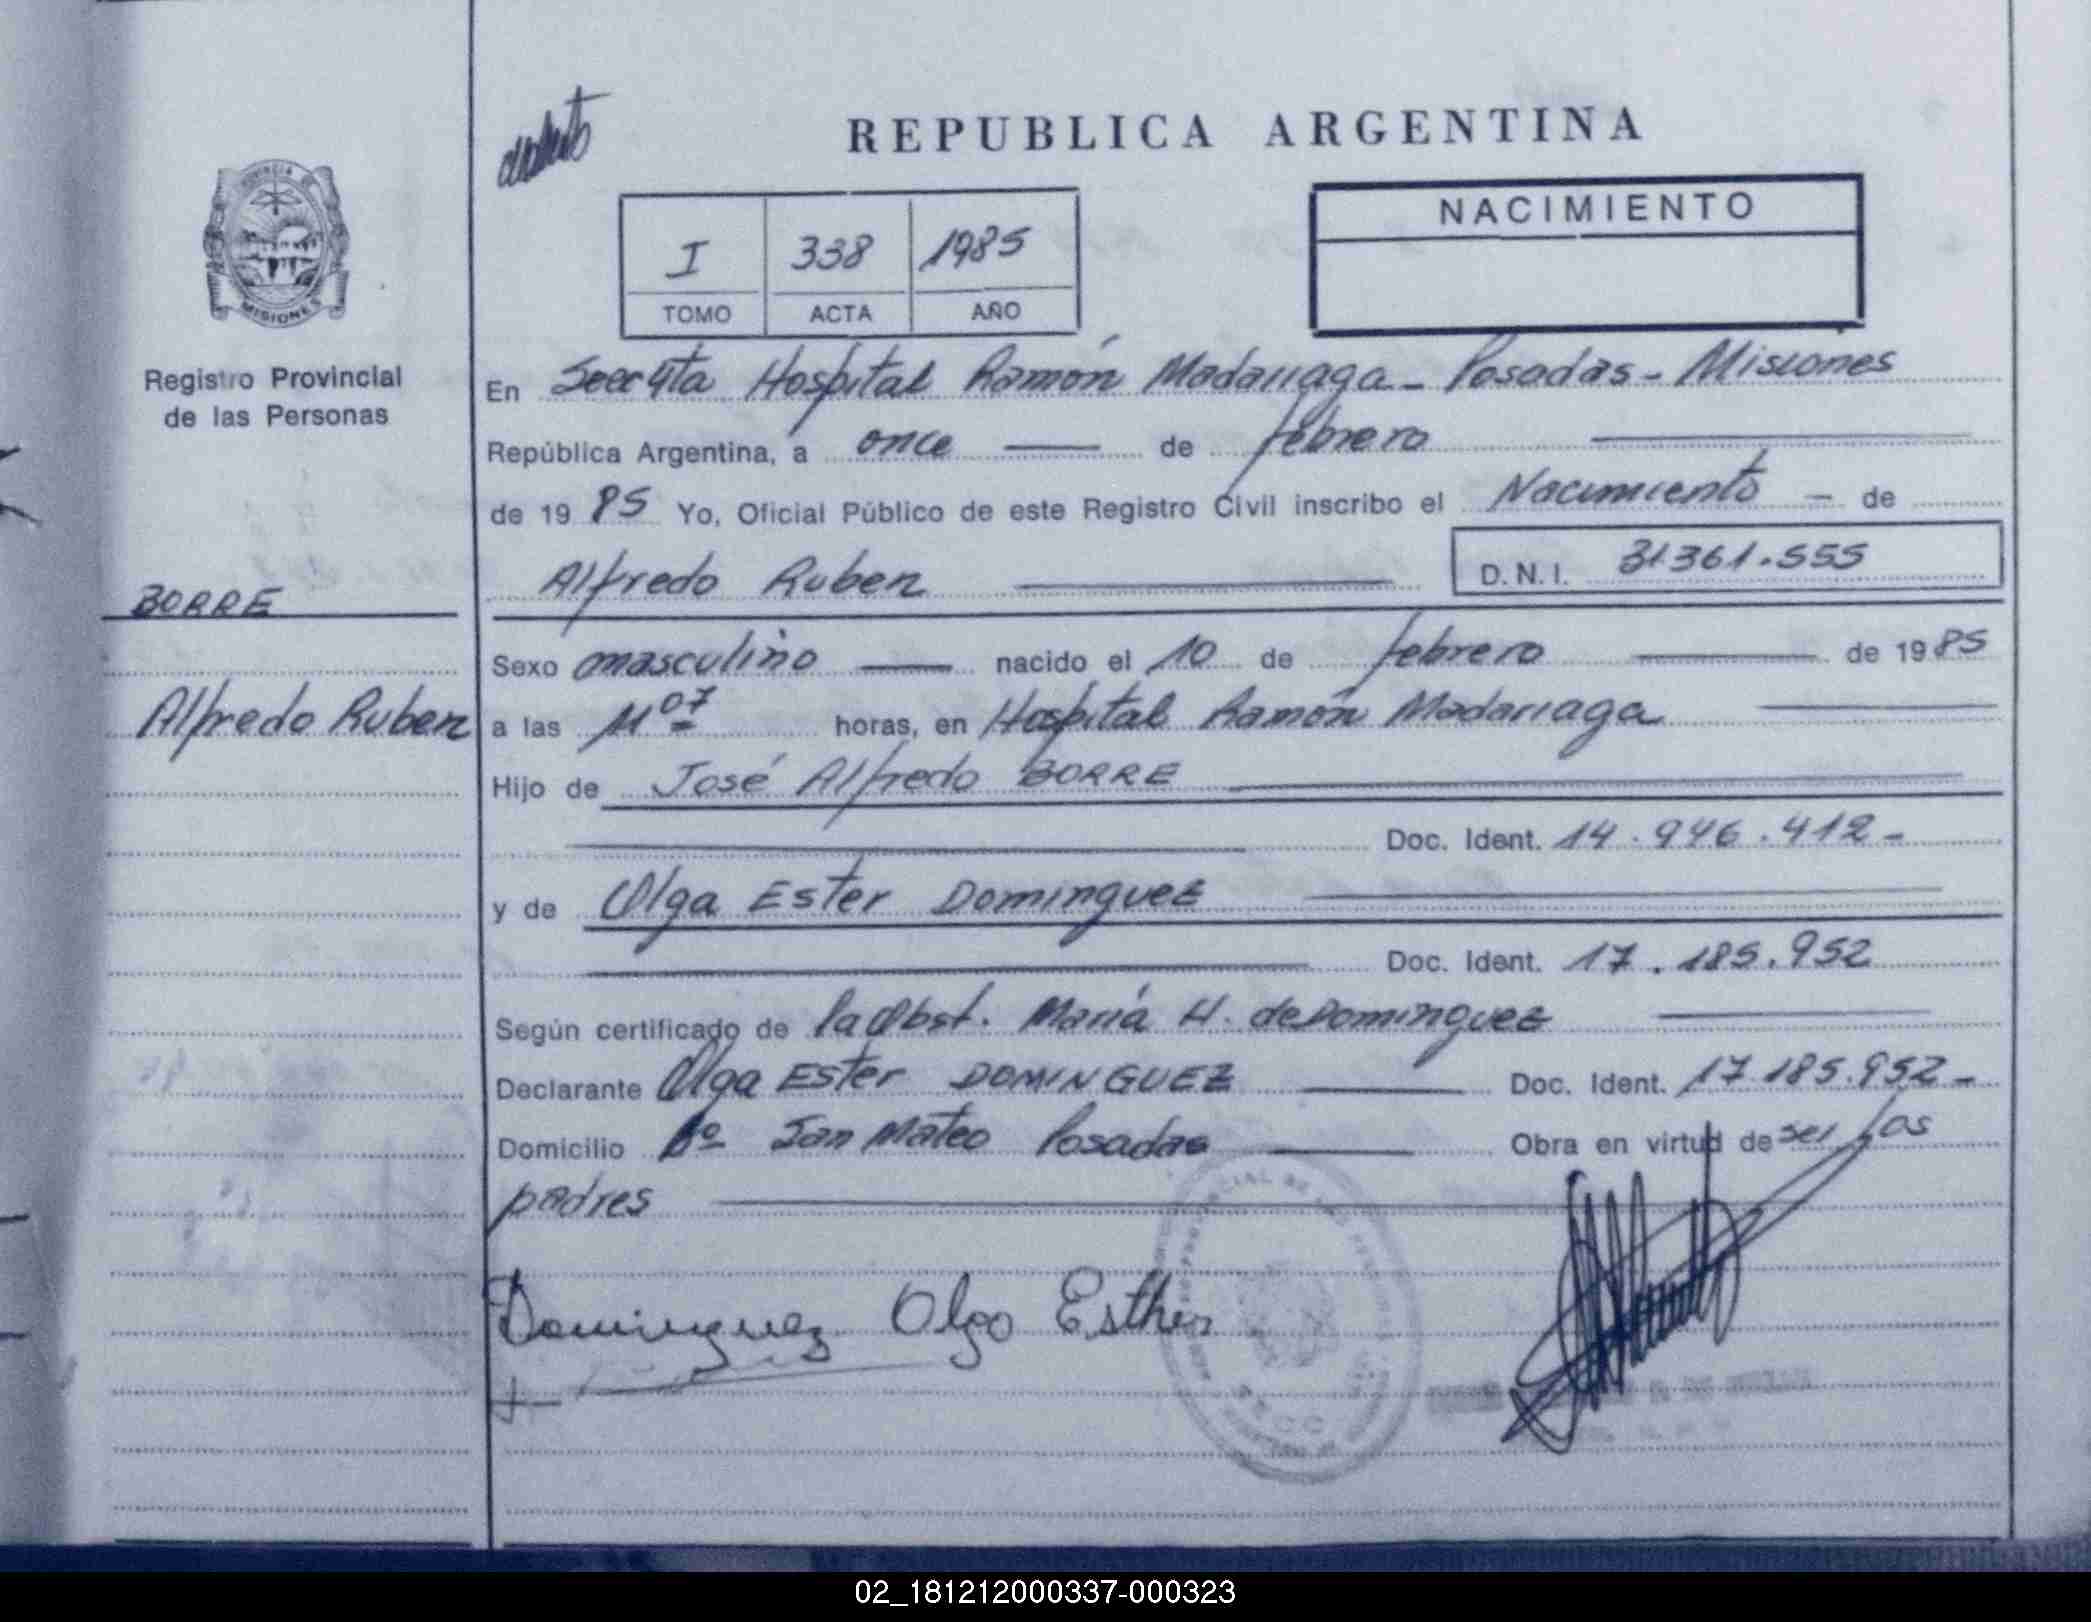 REPUBLICA ARGENTINA
PROVINCIA DE
MISIONES
Registro Provincial
de las Personas
I 338 1985
TOMO ACTA AÑO
NACIMIENTO
En Secc 4ta Hospital Ramón Madariaga - Posadas - Misiones
República Argentina, a once de febrero
de 19 85 Yo, Oficial Público de este Registro Civil inscribo el Nacimiento - de
Alfredo Ruben D.N.I. 31361.555
BORRE
Sexo masculino nacido el 10 de febrero de 19 85
Alfredo Ruben
a las 11 07 horas, en Hospital Ramón Madariaga
Hijo de José Alfredo BORRE
Doc. Ident. 14.946.412-
y de Olga Ester Dominguez
Doc. Ident. 17.185.952
Según certificado de la Obst. María H. de Dominguez
Declarante Olga Ester DOMINGUEZ Doc. Ident. 17185.952-
Domicilio Bº San Mateo Posadas Obra en virtud de ser los
padres
Dominguez Olga Esther
02_181212000337-000323